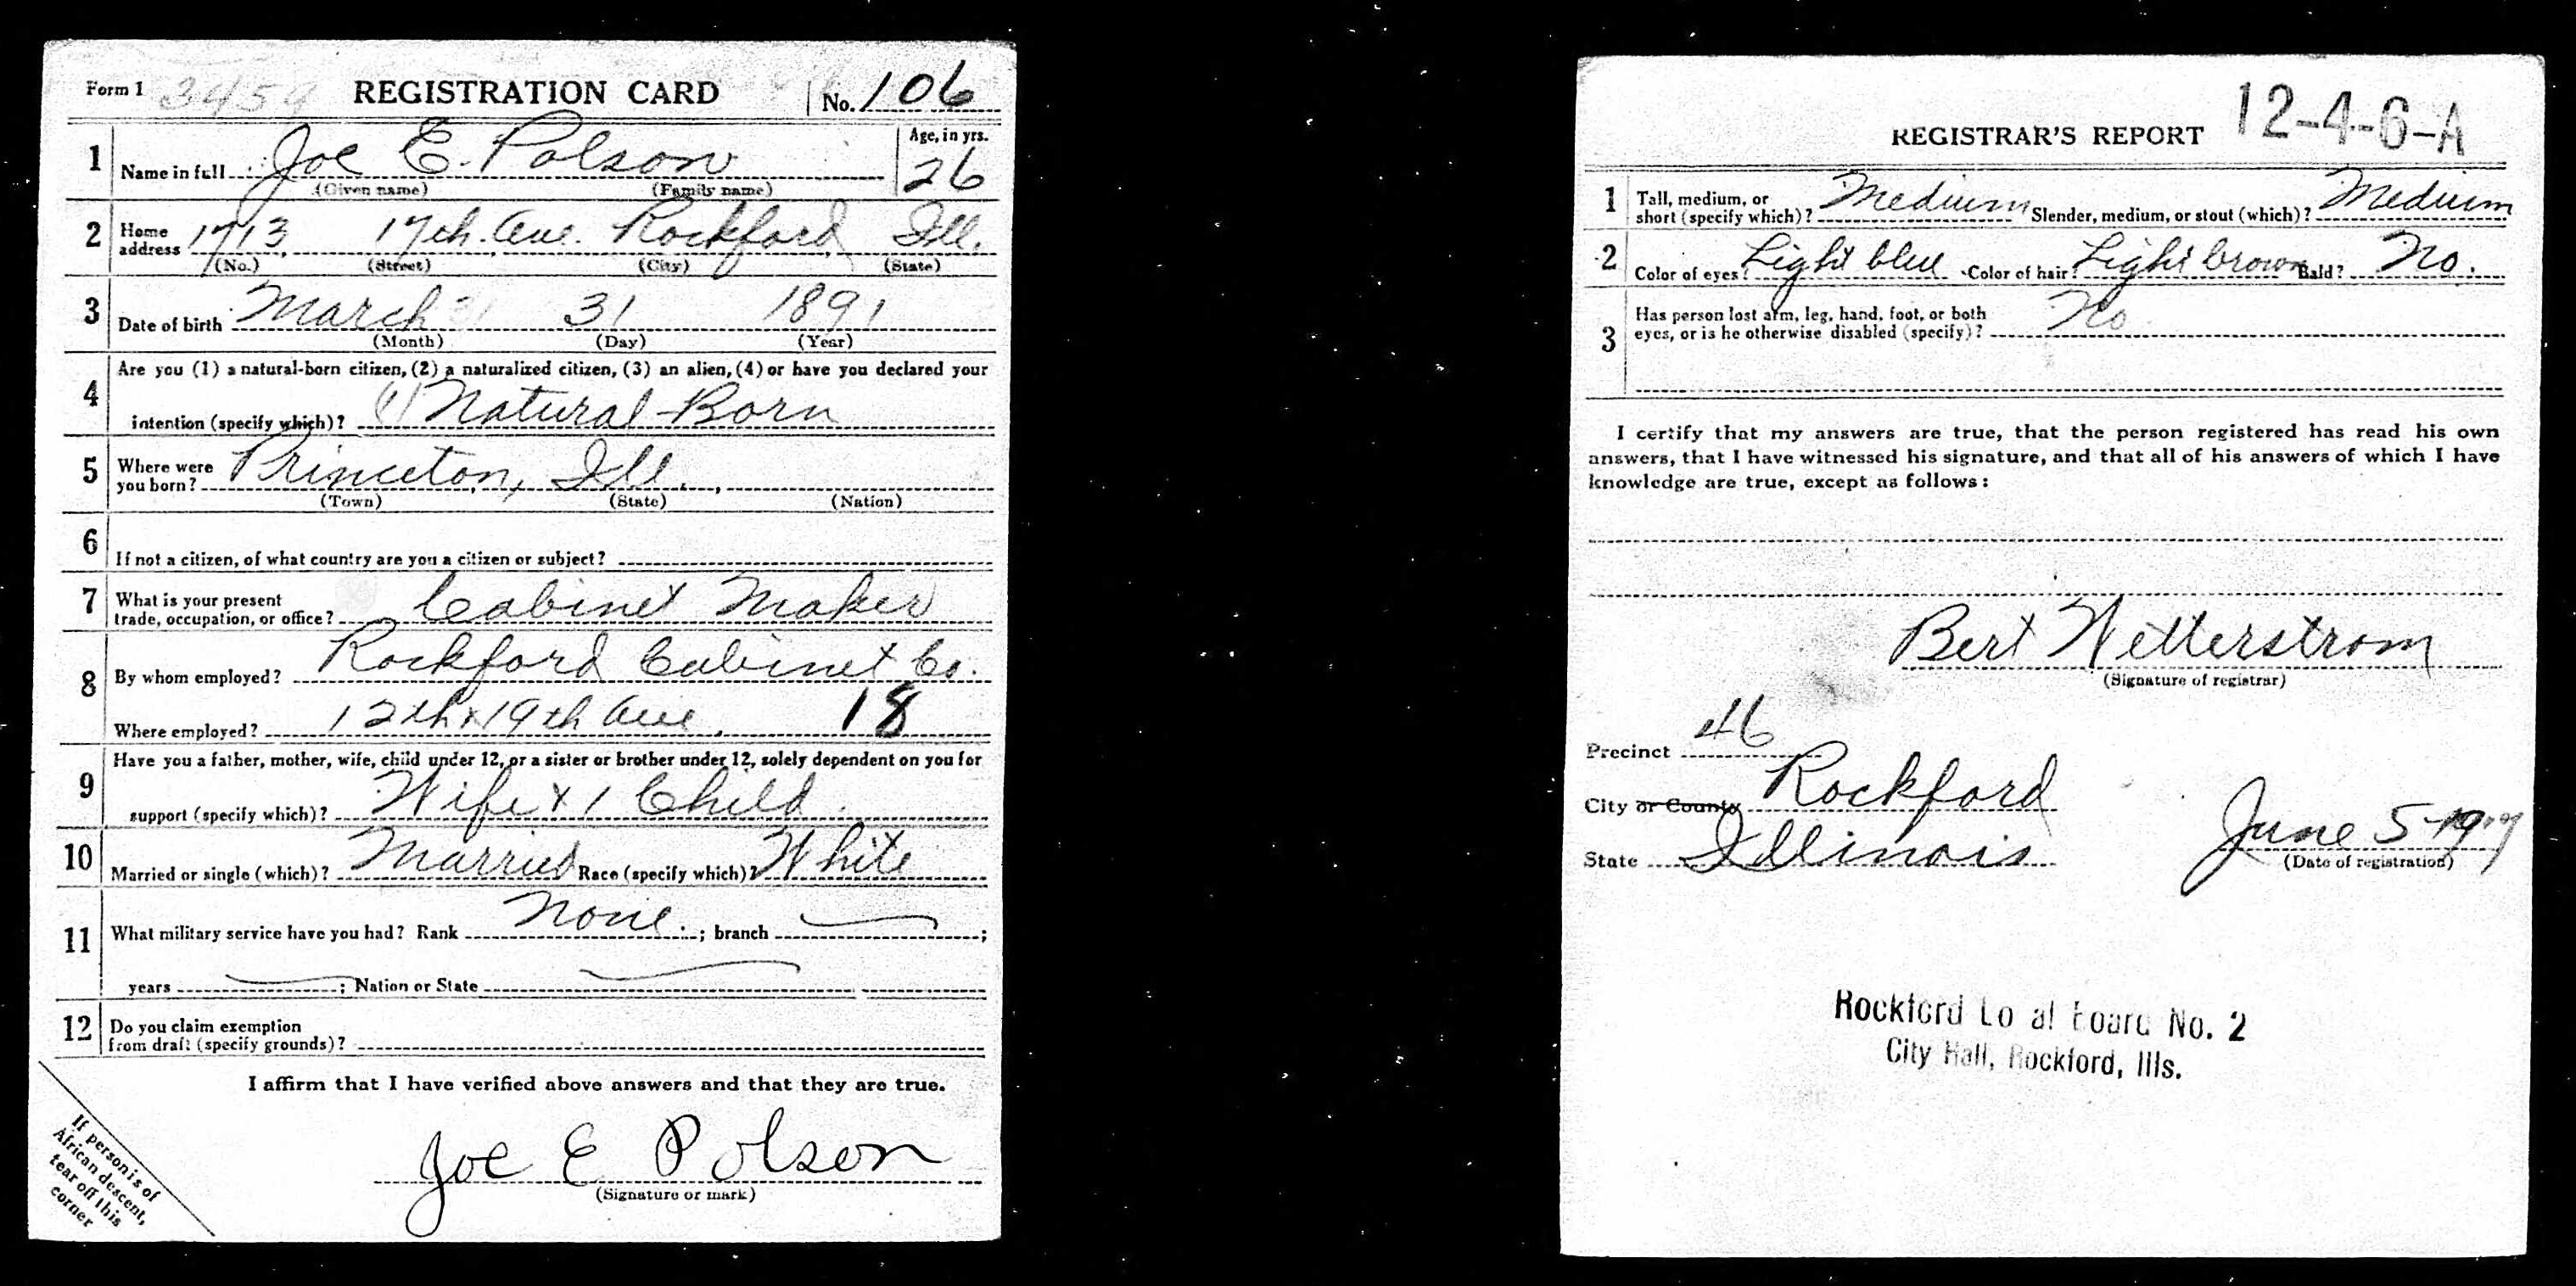 Form 1 3459 REGISTRATION CARD No. 106
1 Name in full Joe E. Polson Age, in yrs. 26
(Given name) (Family name)
2 Home address 1713 17th. Ave. Rockford Ill.
(No.) (Street) (City) (State)
3 Date of birth March 31 31 1891
(Month) (Day) (Year)
4 Are you (1) a natural-born citizen, (2) a naturalized citizen, (3) an alien, (4) or have you declared your
intention (specify which)? (1) Natural-Born
5 Where were you born? Princeton, Ill.
(Town) (State) (Nation)
6 If not a citizen, of what country are you a citizen or subject?
7 What is your present trade, occupation, or office? Cabinet Maker
8 By whom employed? Rockford Cabinet Co.
Where employed? 12th x 19th Ave. 18
9 Have you a father, mother, wife, child under 12, or a sister or brother under 12, solely dependent on you for
support (specify which)? Wife x 1 Child.
10 Married or single (which)? Married Race (specify which)? White
11 What military service have you had? Rank None. ; branch ;
years ; Nation or State
12 Do you claim exemption
from draft (specify grounds)?
I affirm that I have verified above answers and that they are true.
Joe E Polson
(Signature or mark)
If person is of
African descent,
tear off this
corner
REGISTRAR'S REPORT 12-4-6-A
1 Tall, medium, or short (specify which)? Medium Slender, medium, or stout (which)? Medium
2 Color of eyes? Light blue Color of hair? Light brown Bald? No.
3 Has person lost arm, leg, hand, foot, or both
eyes, or is he otherwise disabled (specify)? No
I certify that my answers are true, that the person registered has read his own
answers, that I have witnessed his signature, and that all of his answers of which I have
knowledge are true, except as follows:
Bert Wetterstrom
(Signature of registrar)
Precinct 46
City or County Rockford
State Illinois June 5-1917
(Date of registration)
Rockford Lo al Board No. 2
City Hall, Rockford, Ills.